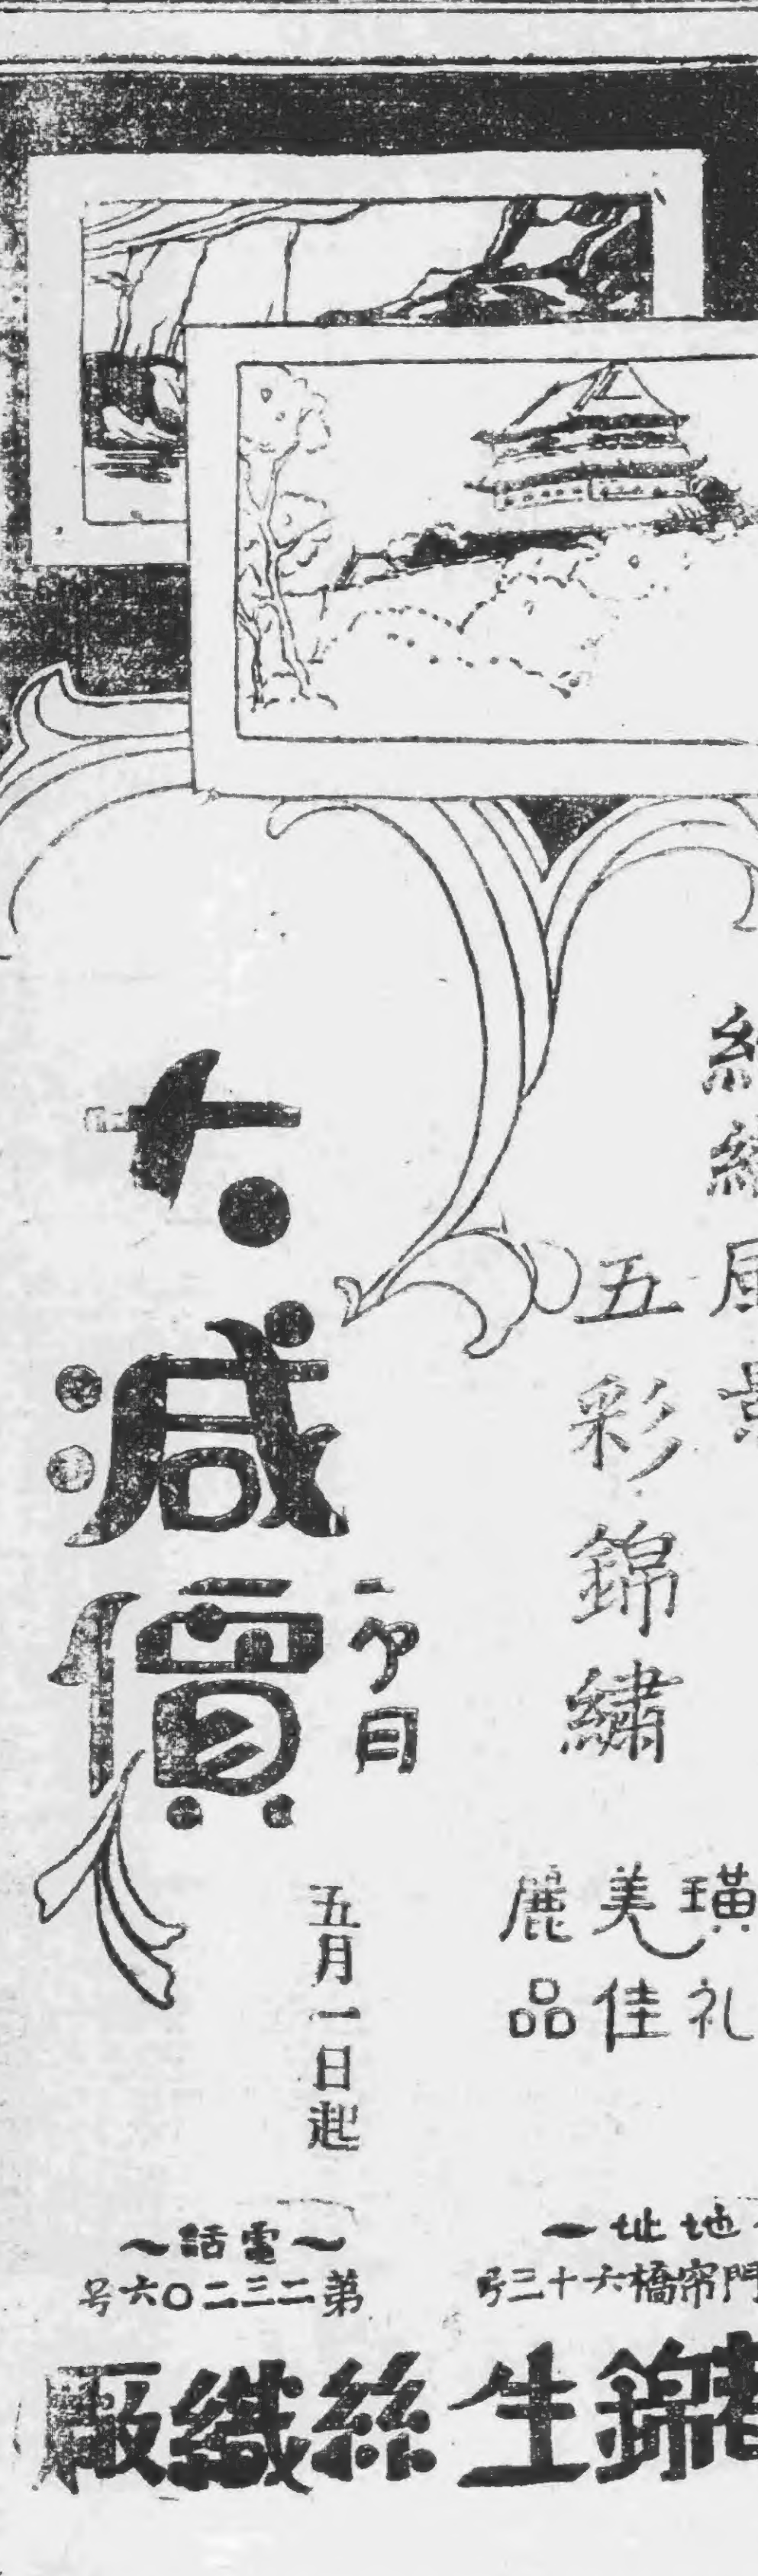 風景
五彩錦繡
璜美麗
礼佳品
大減價
一个月
五月一日起
地址
門帘橋六十三号
電話
第二三二〇六号
都錦生絲織厰